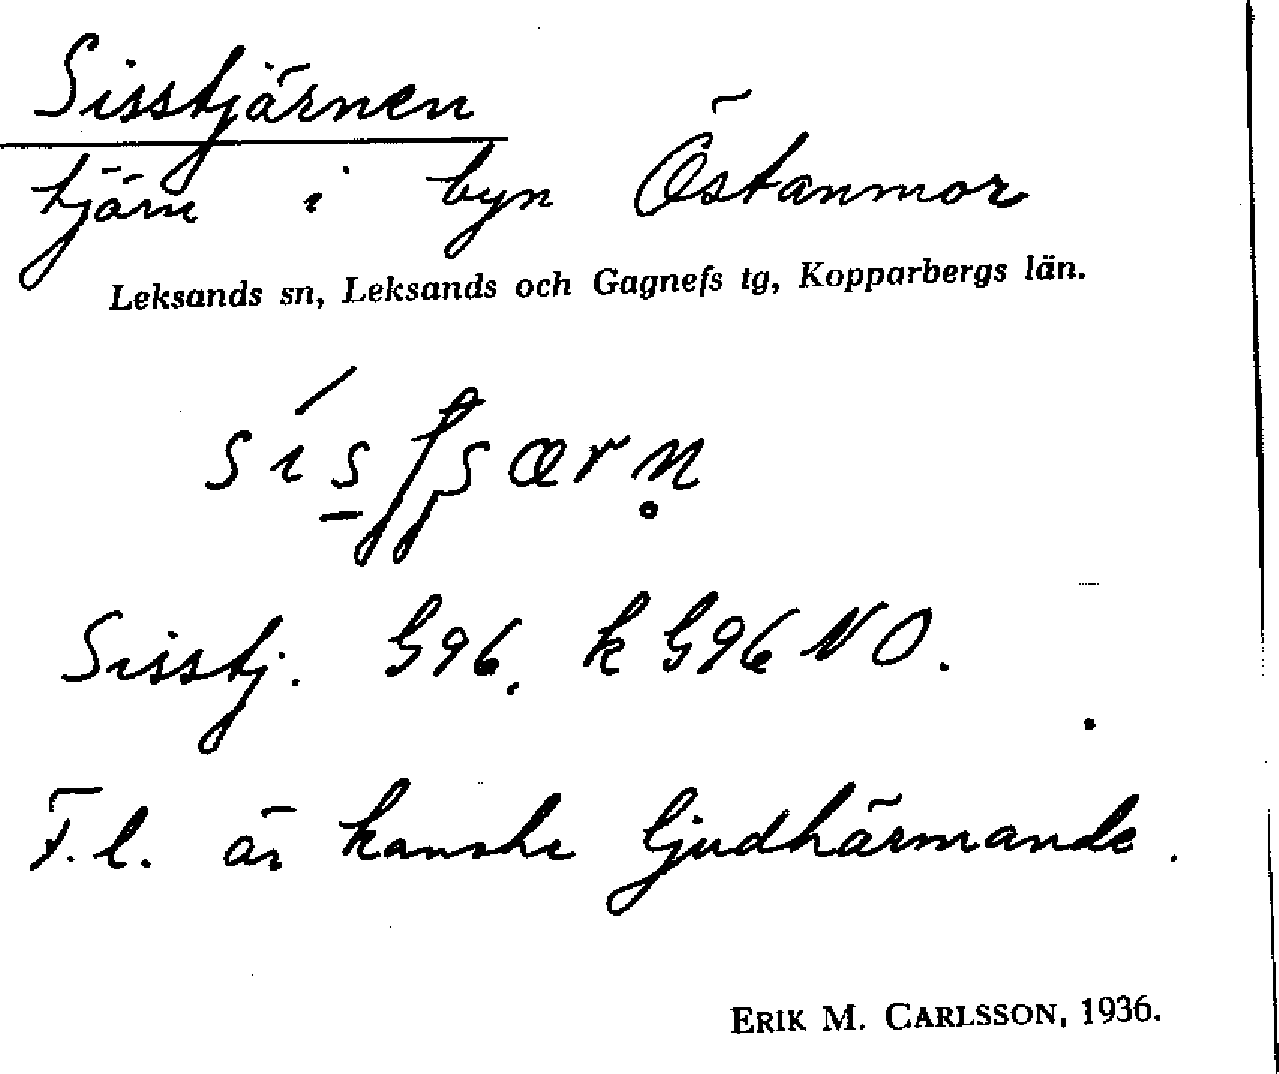 Sisstjärnen
tjärn i byn Östanmor
Leksands sn, Leksands och Gagnefs tg, Kopparbergs län.
Sisstj. G96. k G96 NO.
F.l. är kanske ljudhärmande.
ERIK M. CARLSSON, 1936.